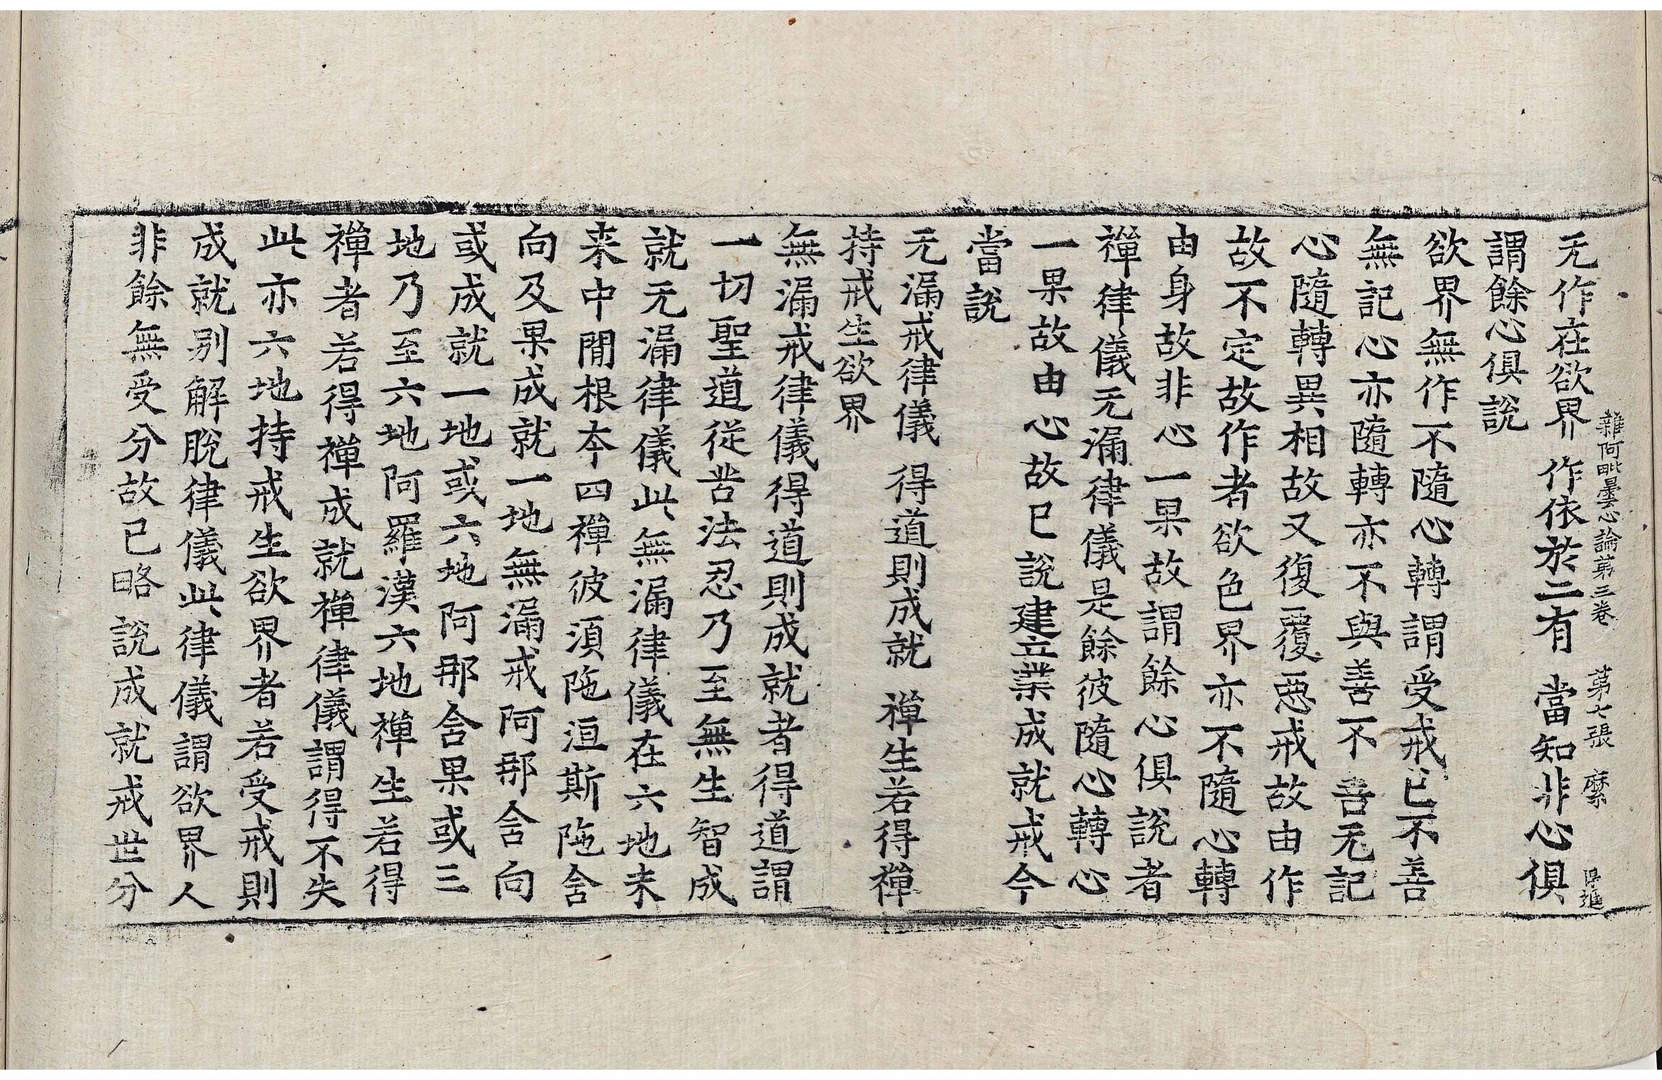 雜阿毗曇心論第三卷 第七張 縻
无作在欲界 作依於二有 當知非心俱
謂餘心俱說
欲界無作不隨心轉謂受戒已不善
無記心亦隨轉亦不與善不善无記
心隨轉異相故又復覆惡戒故由作
故不定故作者欲色界亦不隨心轉
由身故非心一果故謂餘心俱說者
禪律儀无漏律儀是餘彼隨心轉心
一果故由心故已說建立業成就戒今
當說
无漏戒律儀 得道則成就 禪生若得禪
持戒生欲界
無漏戒律儀得道則成就者得道謂
一切聖道從苦法忍乃至無生智成
就无漏律儀此無漏律儀在六地未
来中閒根夲四禪彼湏陁洹斯陁舍
向及果成就一地無漏戒阿那舍向
或成就一地或六地阿那舍果或三
地乃至六地阿羅漢六地禪生若得
禪者若得禪成就禪律儀謂得不失
此亦六地持戒生欲界者若受戒則
成就别解脫律儀此律儀謂欲界人
非餘無受分故已略說成就戒世分